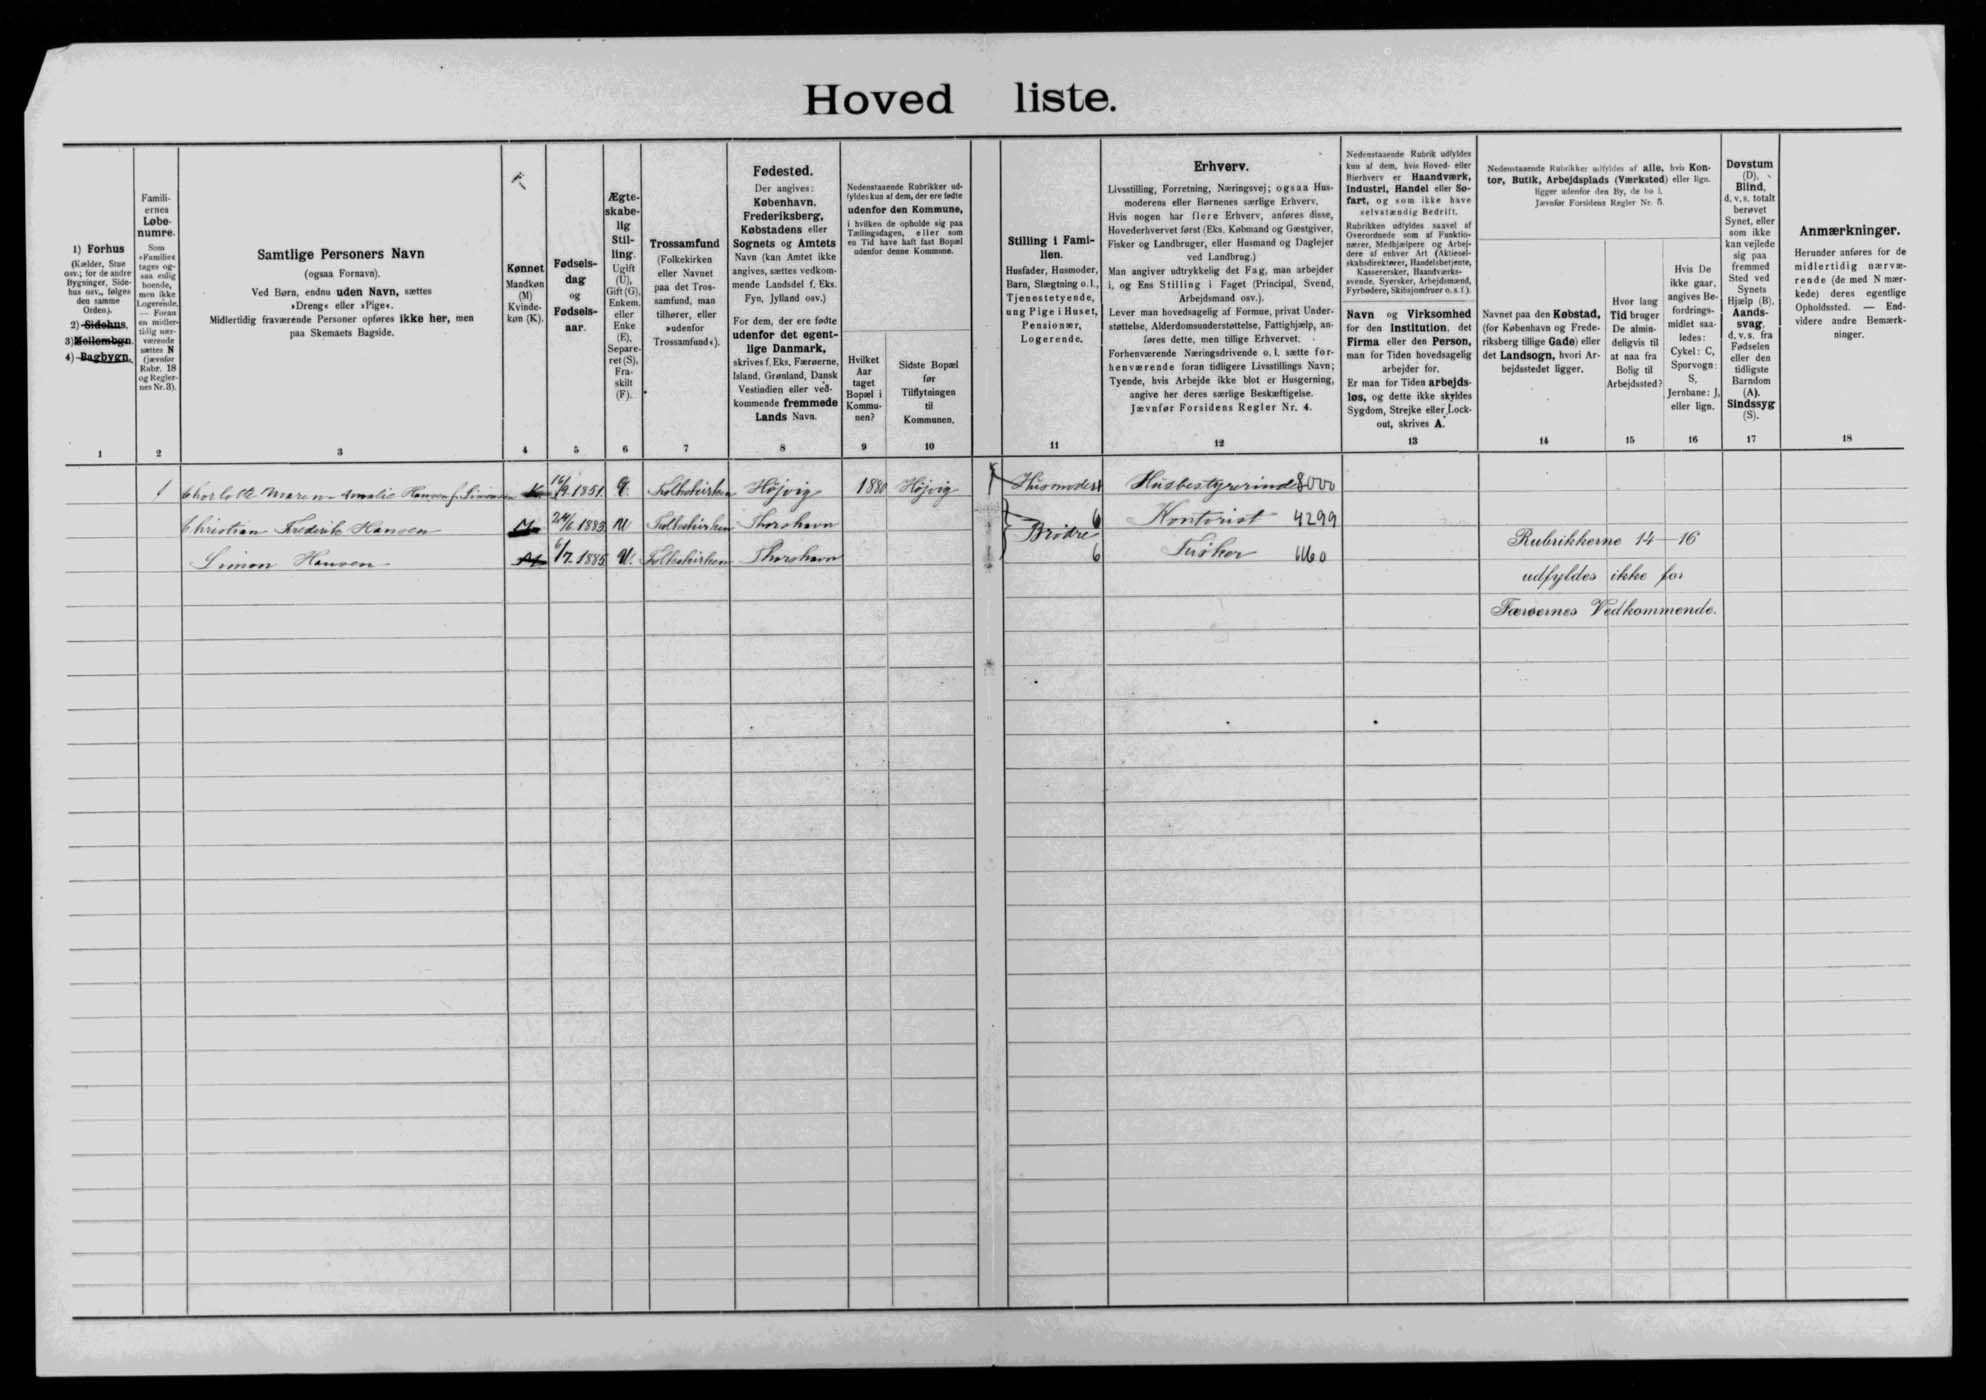 Hoved liste.
1) Forhus
(Kælder, Stue
osv.; for de andre
Bygninger, Side-
hus osv., følges
den samme
Orden).
2) Sidehus,
3) Mellembgn.
4) Bagbygn.
1
Famili-
ernes
Løbe-
numre.
Som
»Familie«
tages og-
saa enlig
boende,
men ikke
Logerende.
— Foran
en midler-
tidig nær-
værende
sættes N
(jævnfør
Rubr. 18
og Regler-
nes Nr. 3).
2
Samtlige Personers Navn
(ogsaa Fornavn).
Ved Børn, endnu uden Navn, sættes
»Dreng« eller »Pige«.
Midlertidig fraværende Personer opføres ikke her, men
paa Skemaets Bagside.
3
Kønnet
Mandkøn
(M)
Kvinde-
køn (K).
4
Fødsels-
dag
og
Fødsels-
aar.
5
Ægte-
skabe-
lig
Stil-
ling.
Ugift
(U),
Gift (G),
Enkem.
eller
Enke
(E),
Separe-
ret (S),
Fra-
skilt
(F).
6
Trossamfund
(Folkekirken
eller Navnet
paa det Tros-
samfund, man
tilhører, eller
»udenfor
Trossamfund«).
7
Fødested.
Der angives:
København,
Frederiksberg,
Købstadens eller
Sognets og Amtets
Navn (kan Amtet ikke
angives, sættes vedkom-
mende Landsdel f. Eks.
Fyn, Jylland osv.)
For dem, der ere fødte
udenfor det egent-
lige Danmark,
skrives f. Eks. Færøerne,
Island, Grønland, Dansk
Vestindien eller ved-
kommende fremmede
Lands Navn.
8
Nedenstaaende Rubrikker ud-
fyldes kun af dem, der ere fødte
udenfor den Kommune,
i hvilken de opholde sig paa
Tællingsdagen, eller som
en Tid have haft fast Bopæl
udenfor denne Kommune.
Hvilket
Aar
taget
Bopæl i
Kommu-
nen?
9
Sidste Bopæl
før
Tilflytningen
til
Kommunen.
10
Stilling i Fami-
lien.
Husfader, Husmoder,
Barn, Slægtning o. l.,
Tjenestetyende,
ung Pige i Huset,
Pensionær,
Logerende.
11
Erhverv.
Livsstilling, Forretning, Næringsvej; ogsaa Hus-
moderens eller Børnenes særlige Erhverv.
Hvis nogen har flere Erhverv, anføres disse,
Hovederhvervet først (Eks. Købmand og Gæstgiver,
Fisker og Landbruger, eller Husmand og Daglejer
ved Landbrug.)
Man angiver udtrykkelig det Fag, man arbejder
i, og Ens Stilling i Faget (Principal, Svend,
Arbejdsmand osv.).
Lever man hovedsagelig af Formue, privat Under-
støttelse, Alderdomsunderstøttelse, Fattighjælp, an-
føres dette, men tillige Erhvervet.
Forhenværende Næringsdrivende o. l. sætte for-
henværende foran tidligere Livsstillings Navn;
Tyende, hvis Arbejde ikke blot er Husgerning,
angive her deres særlige Beskæftigelse.
Jævnfør Forsidens Regler Nr. 4.
12
Nedenstaaende Rubrik udfyldes
kun af dem, hvis Hoved- eller
Bierhverv er Haandværk,
Industri, Handel eller Sø-
fart, og som ikke have
selvstændig Bedrift.
Rubrikken udfyldes saavel af
Overordnede som af Funktio-
nærer, Medhjælpere og Arbej-
dere af enhver Art (Aktiesel-
skabsdirektører, Handelsbetjente,
Kasserersker, Haandværks-
svende, Syersker, Arbejdsmænd,
Fyrbødere, Skibsjomfruer o. s. f.).
Navn og Virksomhed
for den Institution, det
Firma eller den Person,
man for Tiden hovedsagelig
arbejder for.
Er man for Tiden arbejds-
løs, og dette ikke skyldes
Sygdom, Strejke eller Lock-
out, skrives A.
13
Nedenstaaende Rubrikker udfyldes af alle, hvis Kon-
tor, Butik, Arbejdsplads (Værksted) eller lign.
ligger udenfor den By, de bo i.
Jævnfør Forsidens Regler Nr. 5.
Navnet paa den Købstad,
(for København og Frede-
riksberg tillige Gade) eller
det Landsogn, hvori Ar-
bejdsstedet ligger.
14
Hvor lang
Tid bruger
De almin-
deligvis til
at naa fra
Bolig til
Arbejdssted?
15
Hvis De
ikke gaar,
angives Be-
fordrings-
midlet saa-
ledes:
Cykel: C,
Sporvogn:
S,
Jernbane: J,
eller lign.
16
Døvstum
(D),
Blind,
d. v. s. totalt
berøvet
Synet, eller
som ikke
kan vejlede
sig paa
fremmed
Sted ved
Synets
Hjælp (B),
Aands-
svag,
d. v. s. fra
Fødselen
eller den
tidligste
Barndom
(A).
Sindssyg
(S).
17
Anmærkninger.
Herunder anføres for de
midlertidig nærvæ-
rende (de med N mær-
kede) deres egentlige
Opholdssted. — End-
videre andre Bemærk-
ninger.
18
1 Charlotte Maren Amalie Hansen f. Simonsen K 16/9 1851. G. Folkekirken Höjvig 1880 Höjvig Husmoder Husbestyrerinde 8000
Christian Frederik Hansen M 24/6 1883 U Folkekirken Thorshavn 6 Kontorist 4299
Brödre
Simon Hansen M 6/7 1885 U. Folkekirken Thorshavn 6
Rubrikkerne 14—16
udfyldes ikke for
Færøernes Vedkommende.